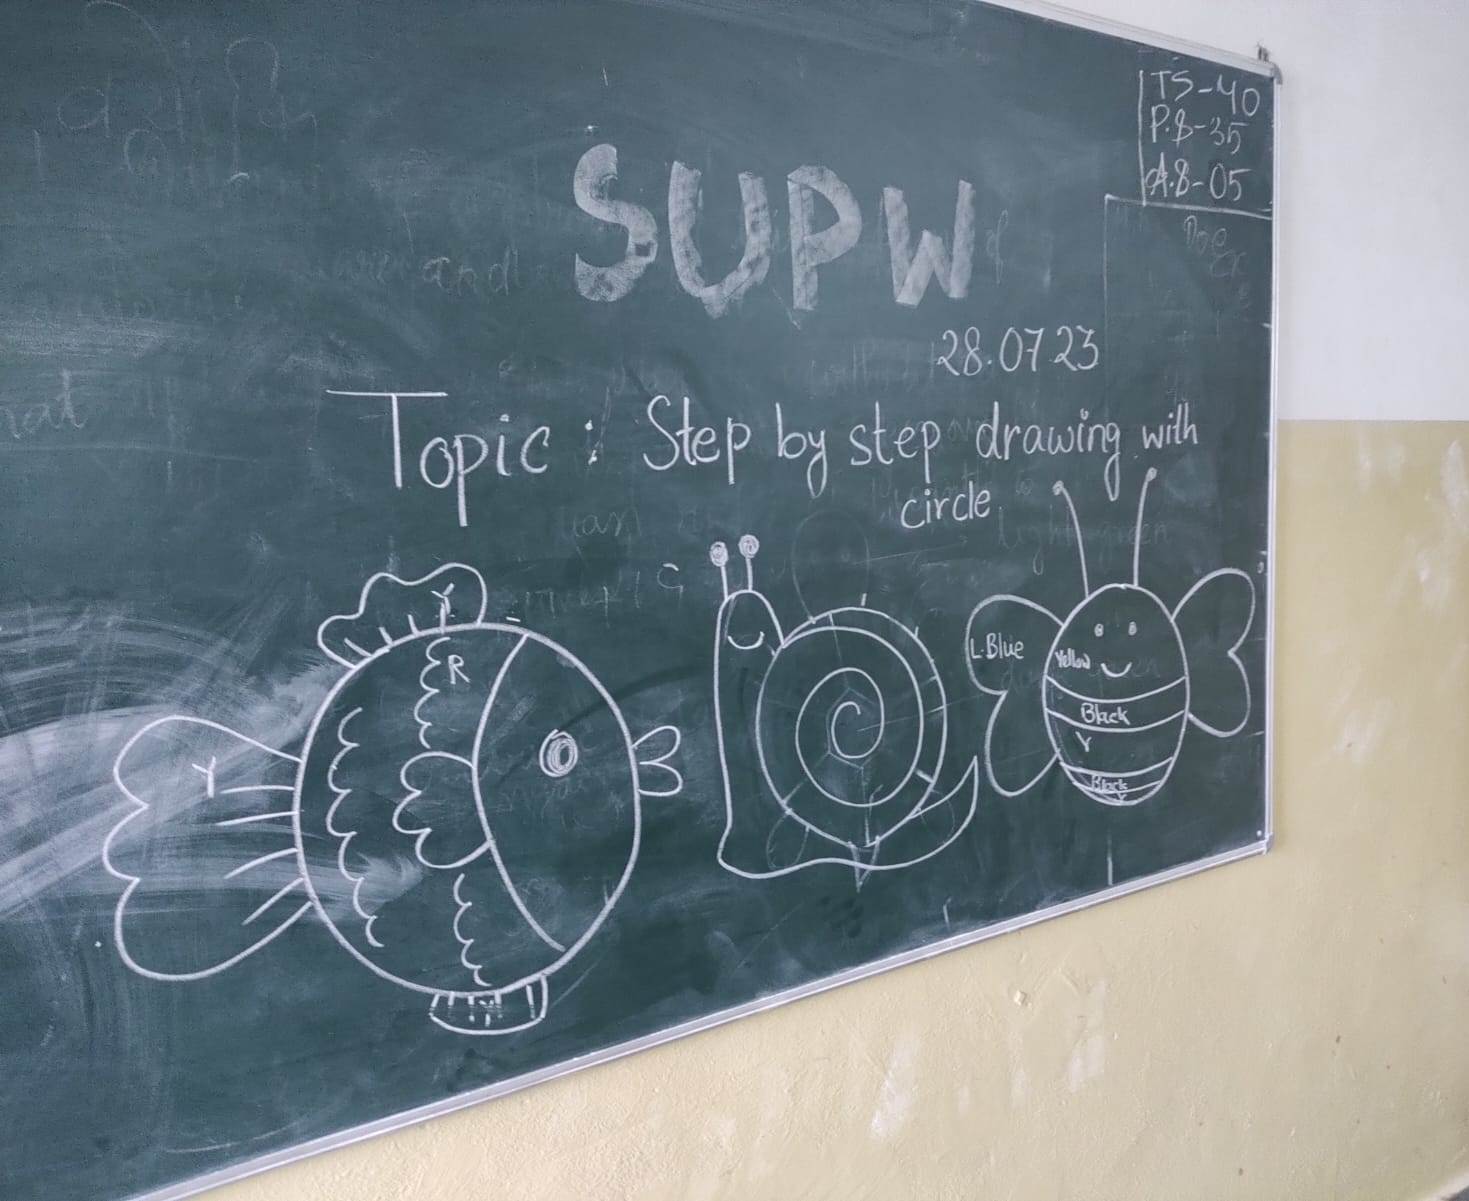 TS-40
P.S-35
A.S-05
SUPW
28.07.23
Topic : Step by step drawing with
circle
Y
R
Y
Y
L.Blue
Yellow
Black
Y
Black
Y
and
hat
light green